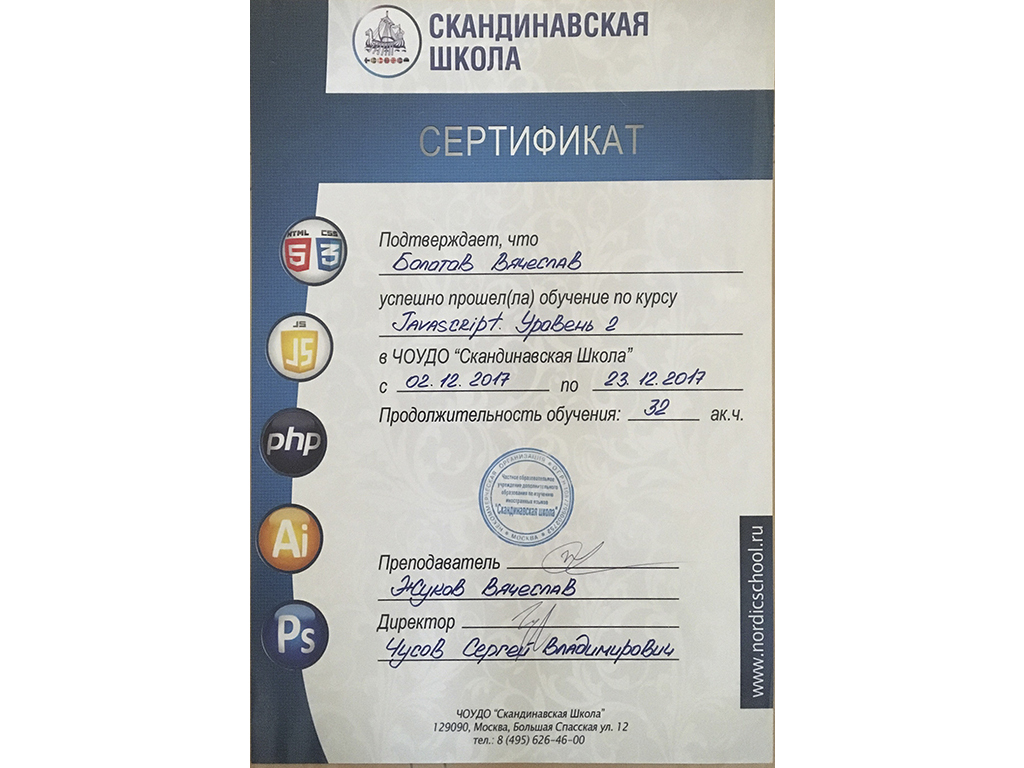 СКАНДИНАВСКАЯ
ШКОЛА
СЕРТИФИКАТ
HTML CSS
5 3
Подтверждает, что
Болотов Вячеслав
успешно прошел(ла) обучение по курсу
JS
JS
Javascript. Уровень 2
в ЧОУДО “Скандинавская Школа”
с 02.12.2017 по 23.12.2017
Продолжительность обучения: 32 ак.ч.
php
НЕКОММЕРЧЕСКАЯ ОРГАНИЗАЦИЯ
Частное образовательное
учреждение дополнительного
образования по изучению
иностранных языков
"Скандинавская школа"
МОСКВА
Ai
Преподаватель
Жуков Вячеслав
Ps
Директор
Чусов Сергей Владимирович
www.nordicschool.ru
ЧОУДО "Скандинавская Школа"
129090, Москва, Большая Спасская ул. 12
тел.: 8 (495) 626-46-00